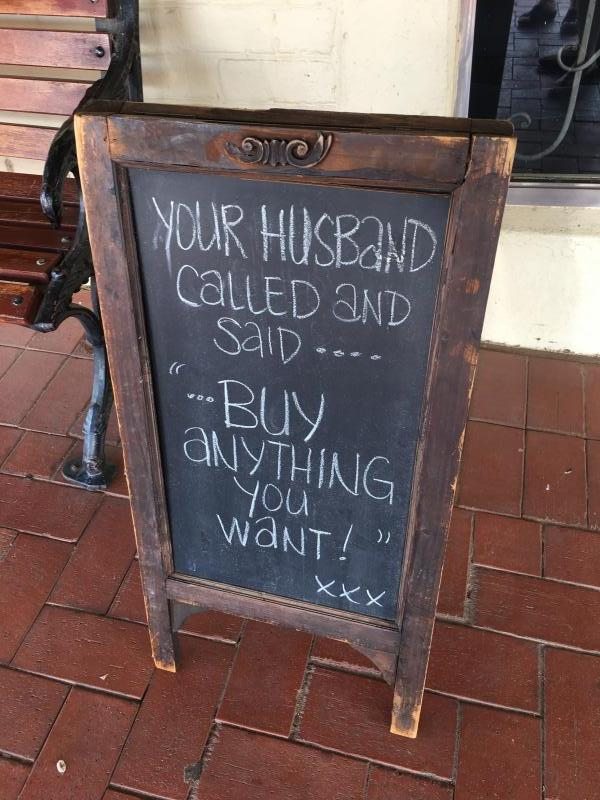 YOUR HUSBaND
CaLLED aND
SaID ....
"...BUY
aNYTHING
YOU
WaNT!"
xxx